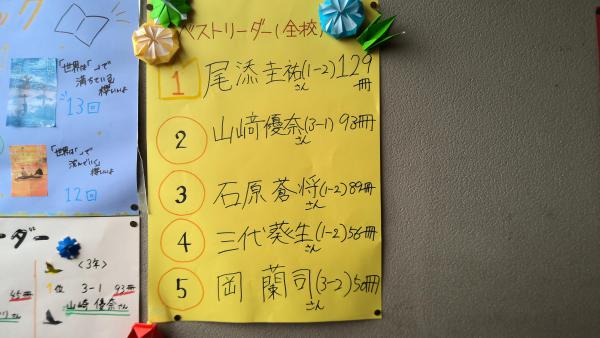 ック
「世界は「」で
満ちている
櫻いいよ
13回
「世界は「」で
沈んでいく
櫻いいよ
12回
ベストリーダー(全校)
1 尾添圭祐さん(1-2)129冊
2 山﨑優奈さん(3-1)93冊
3 石原蒼将さん(1-2)89冊
4 三代葵生さん(1-2)56冊
5 岡 蘭司さん(3-2)50冊
ーダー
<3年>
1位 3-1 93冊
山﨑優奈さん